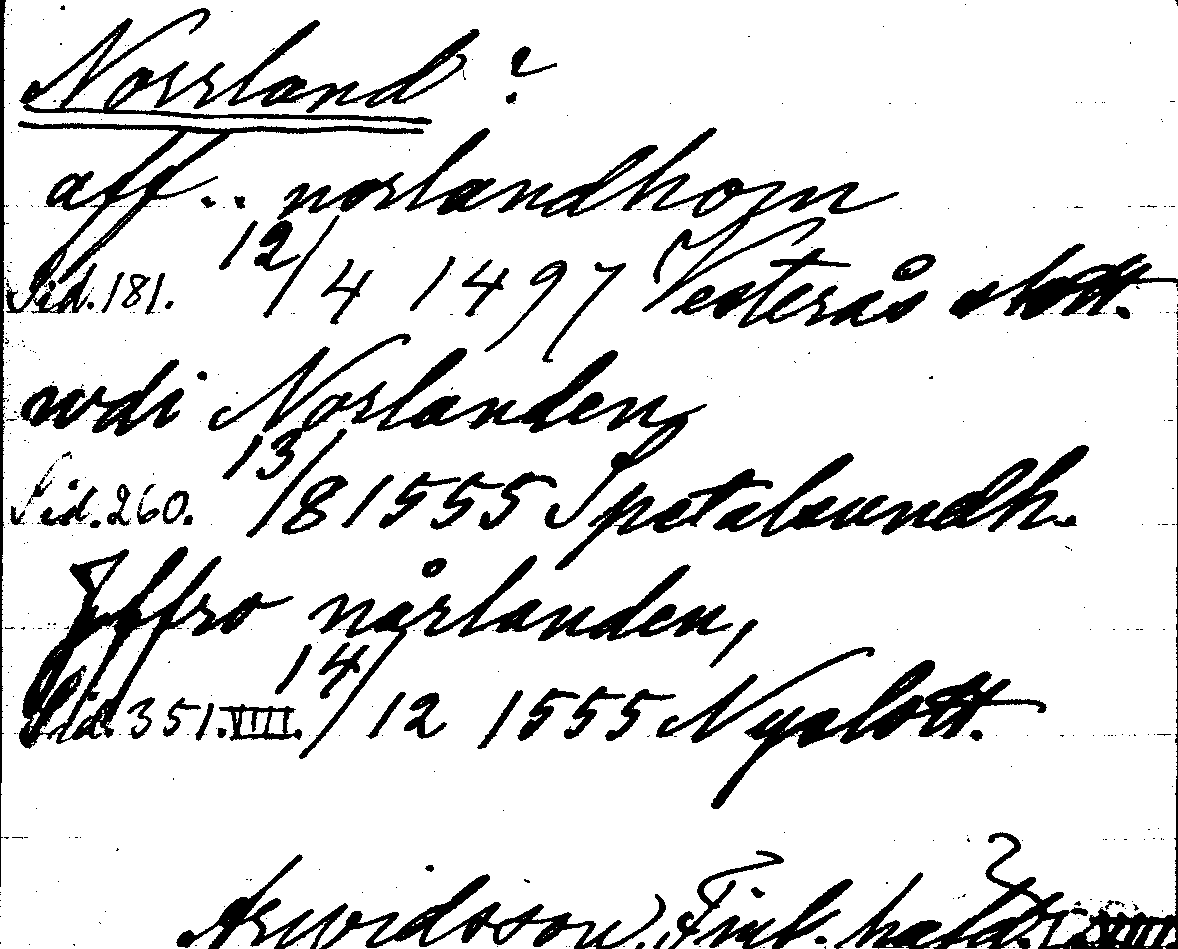 Norrland ?
aff .. norlandhom
Sid. 181. 12/4 1497 Vesterås slott.
wdi Norlanden,
Sid. 260. 13/8 1555 Spetalsundh.
Jffro nårlanden,
Sid. 351. VIII. 14/12 1555 Nyslott.
Arwidsson, Finl. häfd.